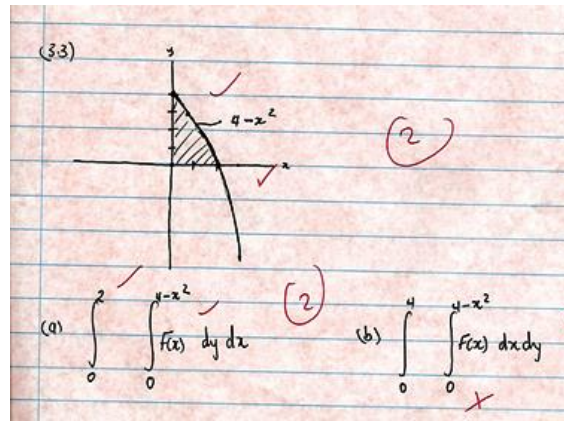 (3.3)
y
4-x²
x
2
(2)
(a) ∫₀² ∫₀^{4-x²} F(x) dy dx
(b) ∫₀⁴ ∫₀^{4-x²} F(x) dx dy
2